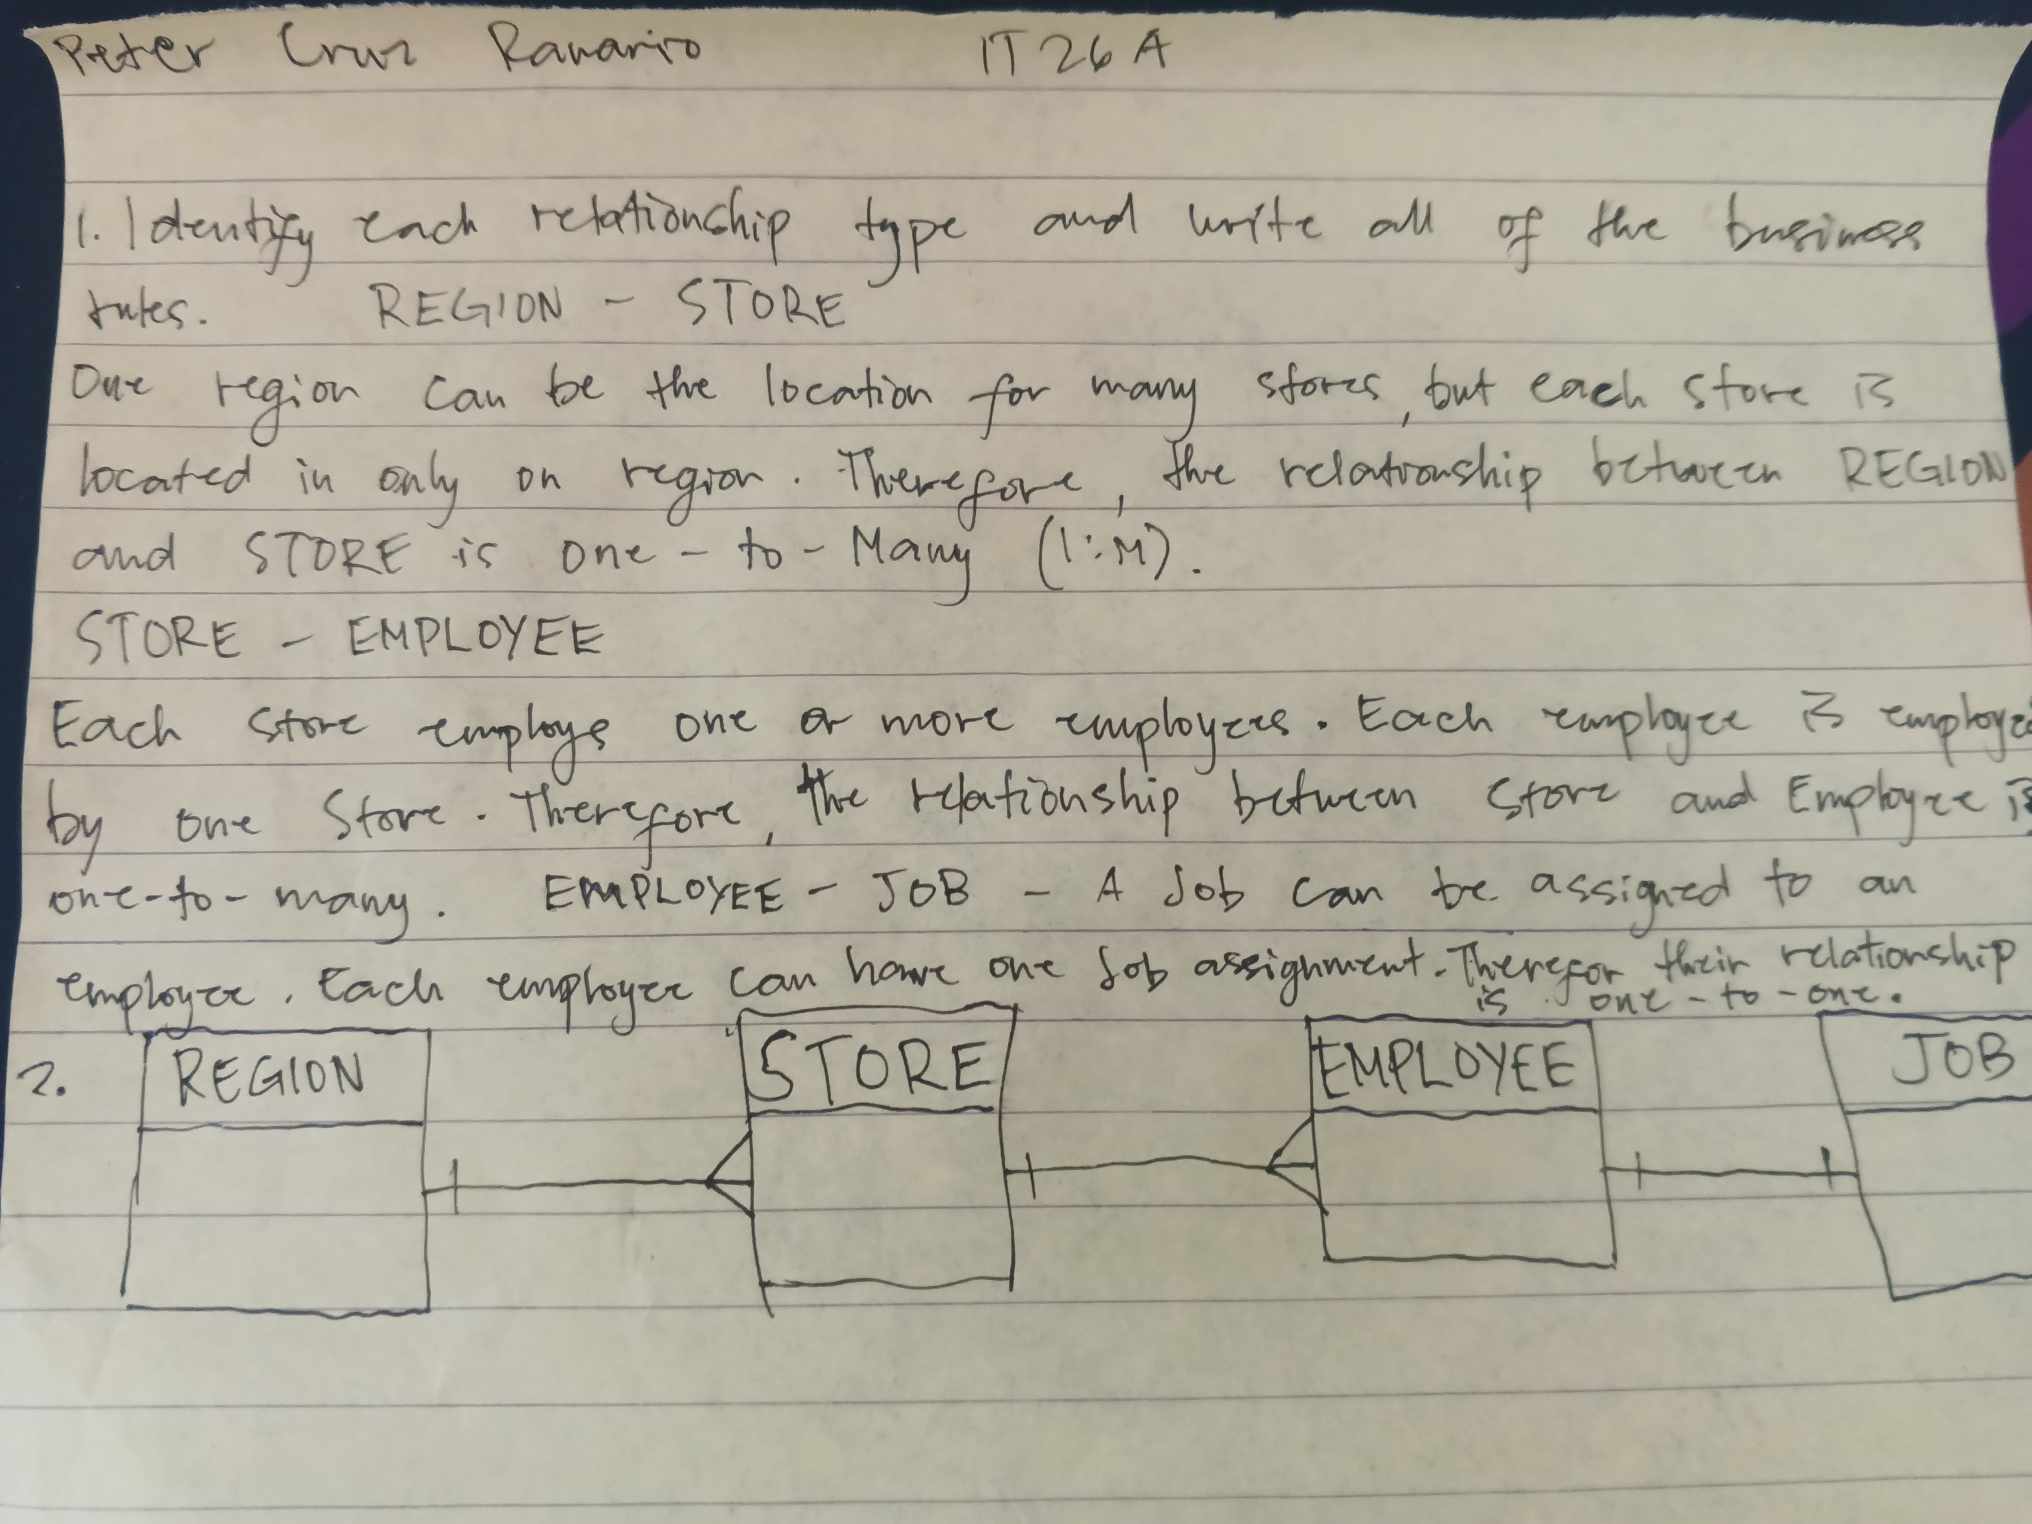 Peter Cruz Ranario IT 26 A
1. Identify each relationship type and write all of the business
rules. REGION - STORE
One region can be the location for many stores, but each store is
located in only on region. Therefore, the relationship between REGION
and STORE is one - to - Many (1:M).
STORE - EMPLOYEE
Each store employs one or more employees. Each employee is employe
by one Store. Therefore, the relationship between Store and Employee is
one-to-many. EMPLOYEE - JOB - A Job can be assigned to an
employee. Each employee can have one Job assignment. Therefor their relationship
is one - to - one.
2. REGION STORE EMPLOYEE JOB